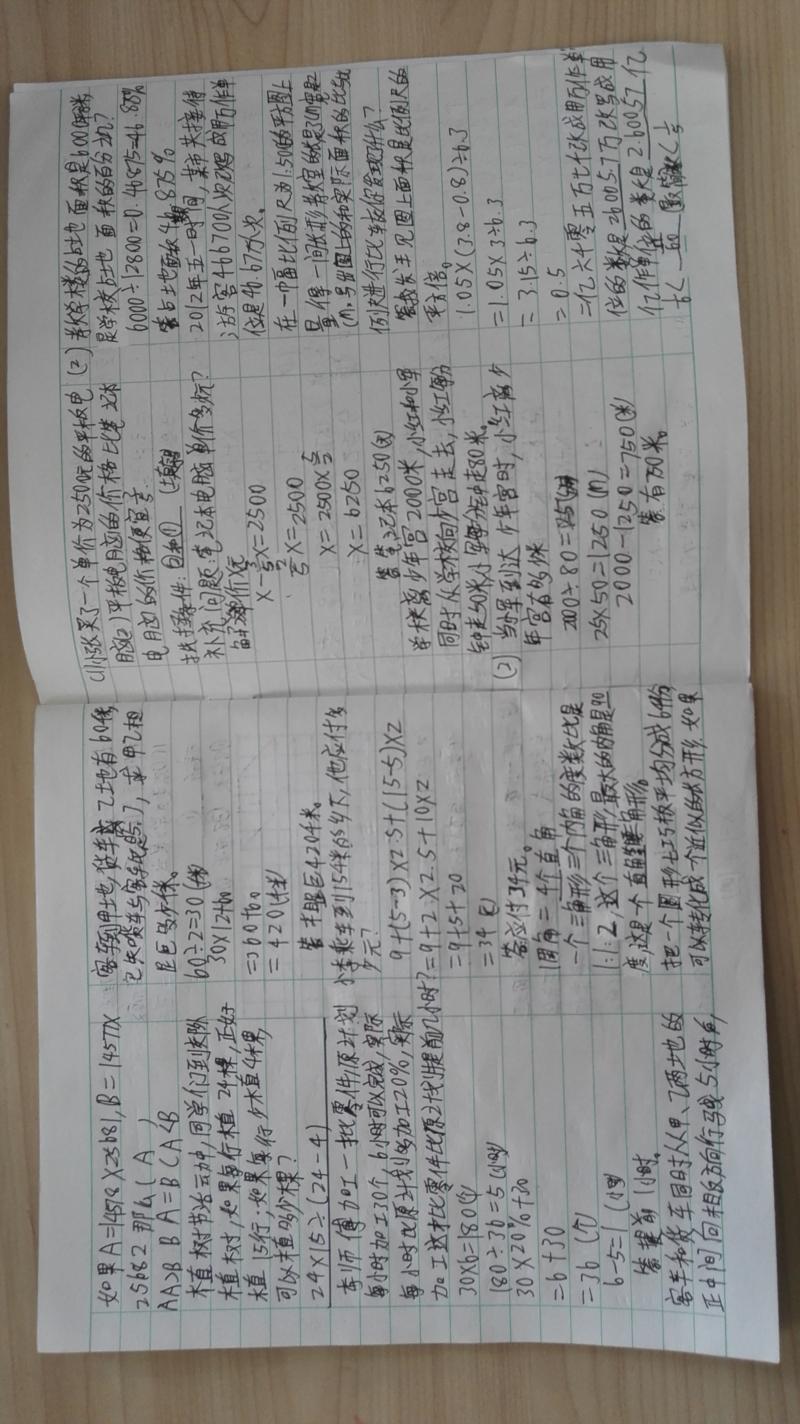 如果A=14578×25681,B=14577×
25682 那么( A )
A A>B B A=B C A<B
植树节活动中,同学们到郊区
植树,如果每行植24棵,正好
植15行,如果每行少植4棵,
可以植多少棵?
24×15÷(24-4)
李师傅加工一批零件,原计划
每小时加工30个,6小时可以完成,实际
每小时比原计划多加工20%,实际
加工这批零件比原计划提前几小时?
30×6=180(个)
180÷36=5(小时)
30×20%+30
=6+30
=36(个)
6-5=1(小时)
答提前1小时。
客车和货车同时从甲、乙两地的
正中间向相反方向行驶5小时后,
客车到甲地,货车离乙地有60千米,
已知货车与客车比是5:7,求甲乙相
距多少千米。
60÷2=30(千米)
30×12+60
=360+60
=420(千米)
答才距距420千米。
小李乘车到15千米的乡下,他应付多
少元?
9+(5-3)×2.5+(15-5)×2
=9+2×2.5+10×2
=9+5+20
=34(元)
答应付34元。
1周角=4个直角
一个三角形三个内角的度数比是
1:1:2,这个三角形最大的内角是90
度,这是一个直角三角形。
把一个圆形七巧板平均分成64份
可以转化成个近似的长方形,如果
(1)小张买了一个单价为2500元的平板电
脑(2)平板电脑的价格比笔记本
电脑的价格便宜
找择条件:①和① (填序号)
补充问题:笔记本电脑单价多少元?
解:设单价X元
X-X=2500
X=2500
X=2500×
X=6250
答笔记本6250(元)
学校离少年宫2000米,小红和小军
同时从学校向少宫走去,小红每分
钟走50米小军每分钟走80米。
(2)当小军到达少年宫时,小红离少
年宫有多少米
2000÷80=25(分钟)
25×50=1250(m)
2000-1250=750(米)
答有750米。
(2)教学楼的占地面积是6000平方米,
是学校占地面积的百分之几?
6000÷12800=0.46875=46.88%
答占地面积46.875%
2012年五一时间,某市共接待
游客466700人次改写成用万作单
位是46.67万人次。
在一幅比例尺为1:50的平面图上
量得一间长形教室的长是3cm宽是2
cm,写出图上的和实际面积的比并和
例尺进行比较你发现了什么?
答我发王见图上面积是比例尺的
平方倍。
1.05×(3.8-0.8)÷6.3
=1.05×3÷6.3
=3.15÷6.3
=0.5
二亿六千零五万七千改成用万作单
位的数是26005.7万改写成用
亿作单位的数是2.60057亿